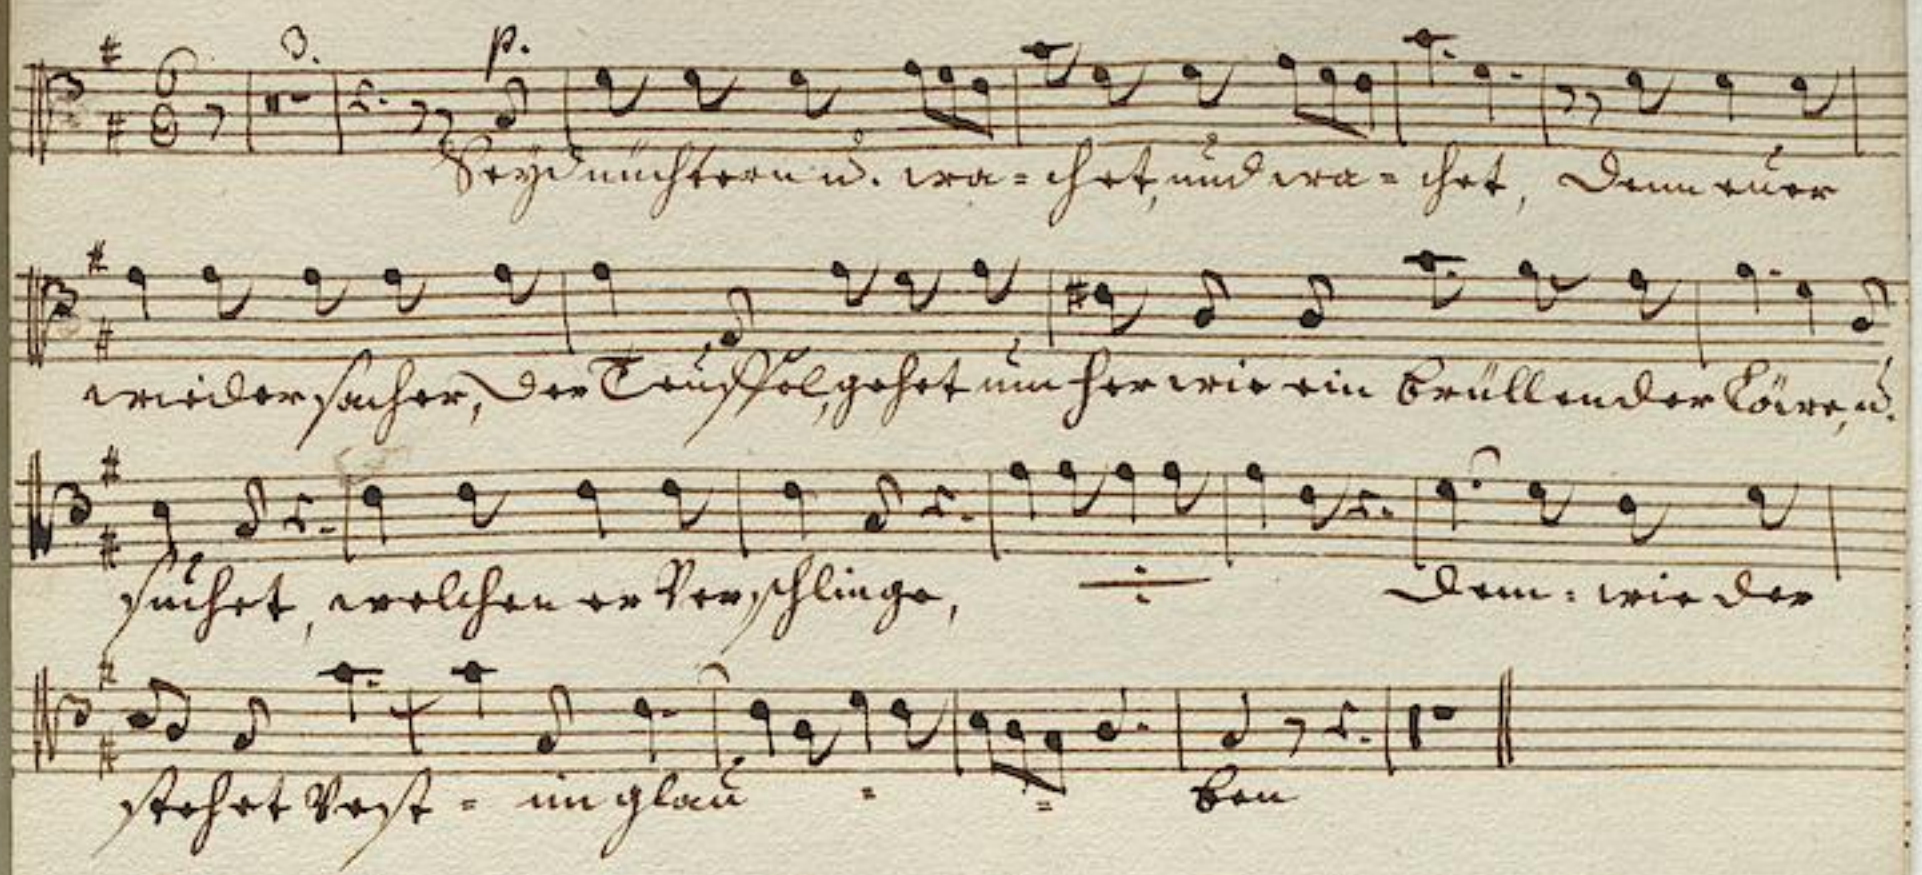 3. p.
Seyd nüchtern u. wa = chet, und wa = chet, Denn euer
wiedersacher, der Teuffel, gehet umher wie ein brüllender Löwe, u.
suchet, welchen er Verschlinge, Dem = wieder
stehet Vest = im glau = = ben